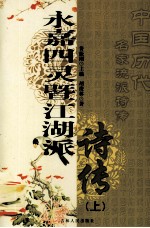 中国历代
名家流派诗传
永嘉四灵暨江湖派
诗传
(上)
吉林人民出版社